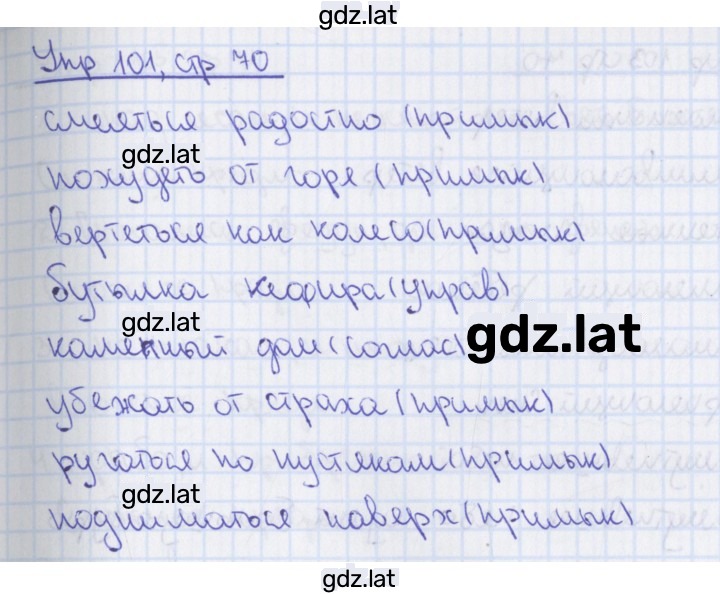 gdz.lat
Упр 101, стр 70
смеяться радостно (примык)
gdz.lat
похудеть от горя (примык)
вертеться как колесо (примык)
бутылка кефира (управ)
gdz.lat
каменный дом (соглас)
gdz.lat
убежать от страха (примык)
ругаться по пустякам (примык)
gdz.lat
подниматься наверх (примык)
gdz.lat